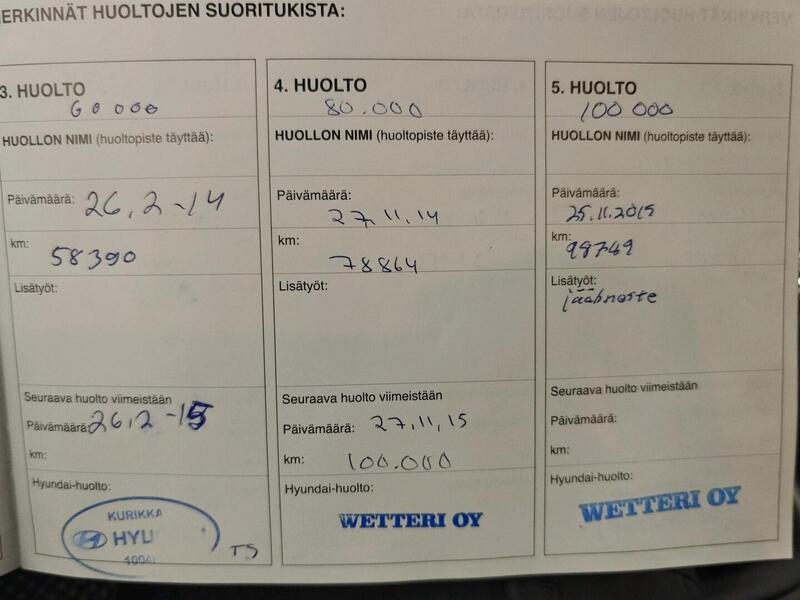 ERKINNÄT HUOLTOJEN SUORITUKISTA:
3. HUOLTO
60 000
HUOLLON NIMI (huoltopiste täyttää):
Päivämäärä: 26.2-14
km:
58390
Lisätyöt:
Seuraava huolto viimeistään
Päivämäärä: 26.2-15
km:
Hyundai-huolto:
KURIKKA
HYU
TS
4. HUOLTO
80.000
HUOLLON NIMI (huoltopiste täyttää):
Päivämäärä:
27.11.14
km:
78864
Lisätyöt:
Seuraava huolto viimeistään
Päivämäärä: 27.11.15
km: 100.000
Hyundai-huolto:
WETTERI OY
5. HUOLTO
100 000
HUOLLON NIMI (huoltopiste täyttää):
Päivämäärä:
25.11.2015
km:
98749
Lisätyöt:
jäähnoste
Seuraava huolto viimeistään
Päivämäärä:
km:
Hyundai-huolto:
WETTERI OY